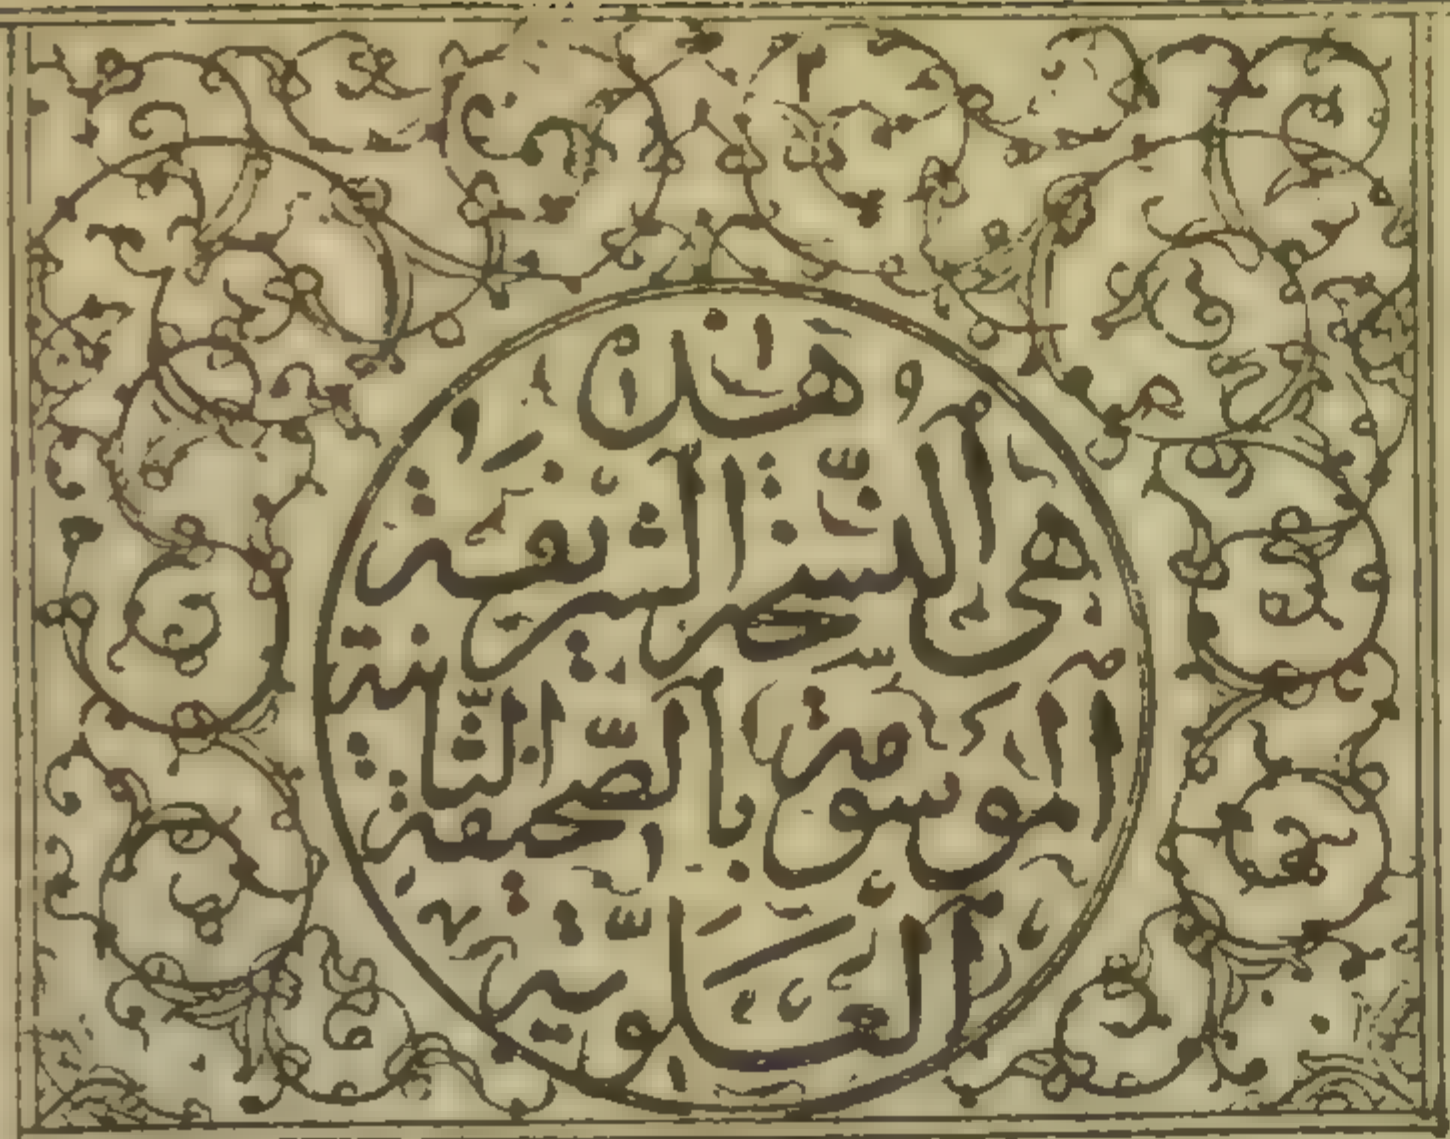 هذا
هي النسخة الشريفة
الموسومة بالصحيفة الثانية
العلوية